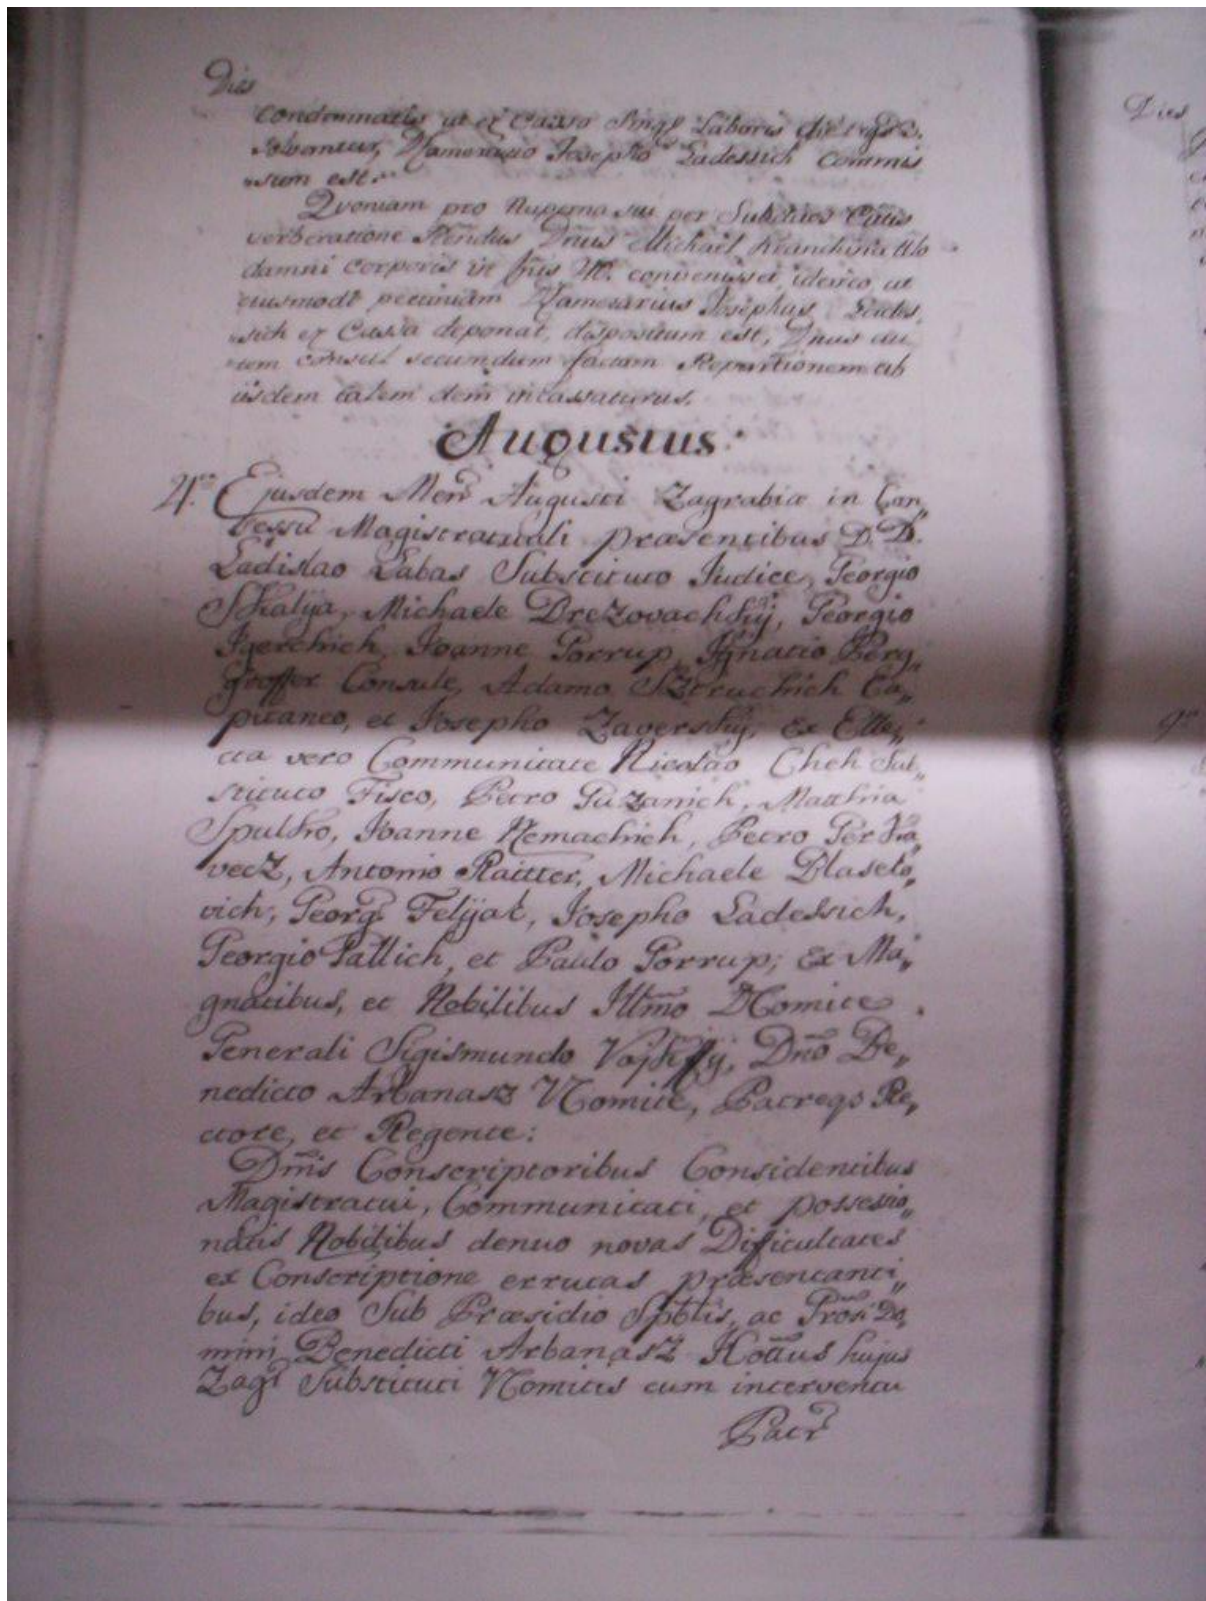 Dies
Condemnatis ut ex Cassa Laboris
solvantur, Josepho Ladessich Commis
sum est.
Qvoniam pro Nuperna per Subditos
verberatione Dnus Michael
damni corporis in convenisset, iderco ut
eiusmodi pecuniam Josephus Lades,
sich ex Cassa deponat, dispositum est, Dnus au
tem Consul secundum factam Repartitionem ab
iisdem talem dem incassaturus.
Augustus.
Ejusdem Mens Augusti Zagrabiæ in Con,,
sessu Magistratuali præsentibus D. D.
Ladislao Labas Substituto Iudice, Georgio
Skalya, Michaele Drezovachkÿ, Georgio
Igerchich, Ioanne Porrup, Ignatio Berg,,
hoffer Consule, Adamo Sztruchich Ca,,
pitaneo, et Iosepho Zagerskÿ, Ex Elle,,
cta vero Communitate Nicolao Cheh Sub,,
stituto Fisco, Petro Puzanich, Matthia
Spulko, Ioanne Nemachich, Petro
vecz, Antonio Raitter, Michaele Blaseko,,
vich, Georg Felÿat, Iosepho Ladessich,
Georgio Pallich, et Paulo Porrup; Ex Ma,,
gnatibus, et Nobilibus Illmo DComite
Generali Sigismundo Dno Be,,
nedicto Arbanasz VComite, Patreqs Re,,
ctore, et Regente:
Dnis Conscriptoribus Considentibus
Magistratui, Communitati, et possessio,,
natis Nobilibus denuo novas Difficultates
ex Conscriptione errutas præsentanti,,
bus, ideo Sub Præsidio Spbtis, ac Do,,
mini Benedicti Arbanasz hujus
Zag Substituti VComitis cum interventu
Patr
Dies